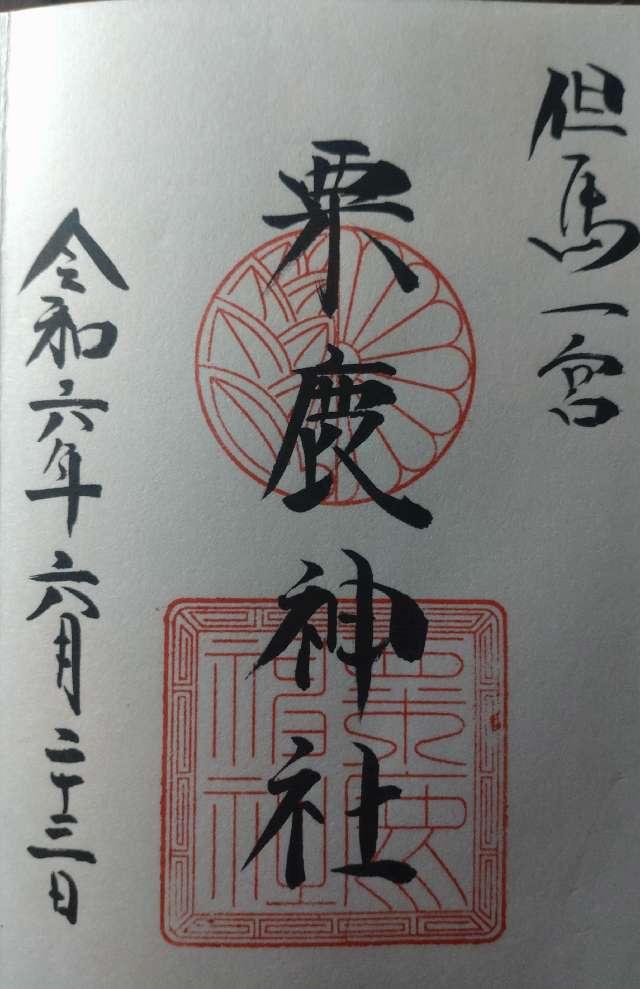 但馬一宮
粟鹿神社
令和六年六月二十三日
粟鹿
神社